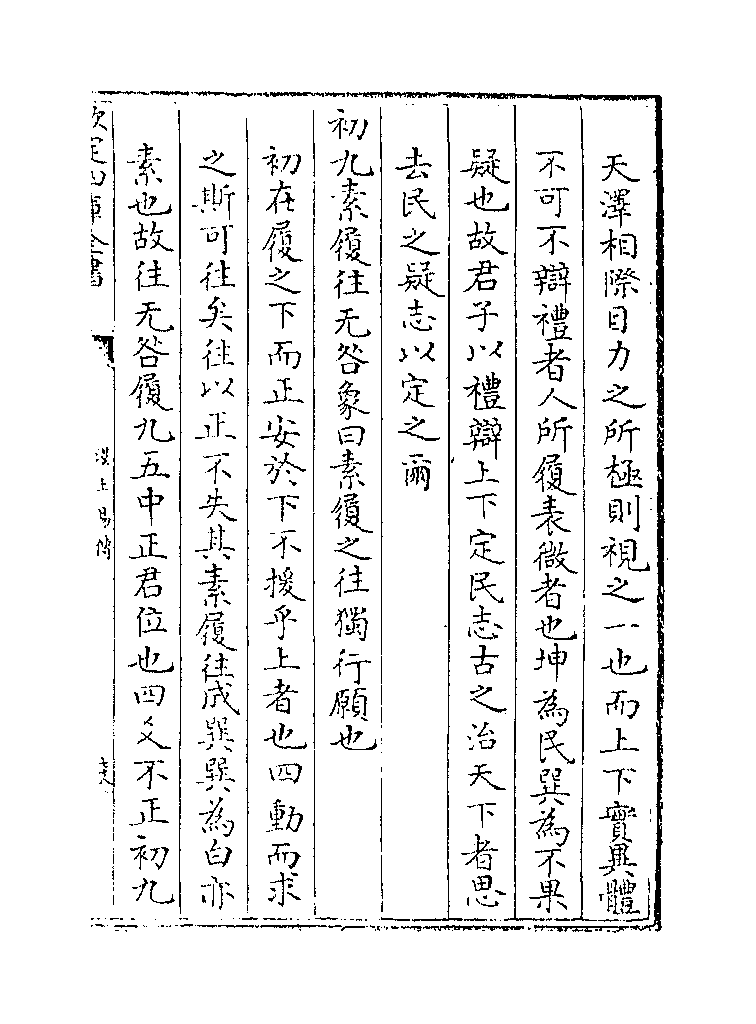 天澤相際目力之所極則視之一也而上下實異體
不可不辯禮者人所履表微者也坤為民巽為不果
疑也故君子以禮辯上下定民志古之治天下者思
去民之疑志以定之爾
初九素履往无咎象曰素履之往獨行願也
初在履之下而正安於下不援乎上者也四動而求
之斯可往矣往以正不失其素履往成巽巽為白亦
素也故往无咎履九五中正君位也四爻不正初九
欽定四庫全書
漢上易傳